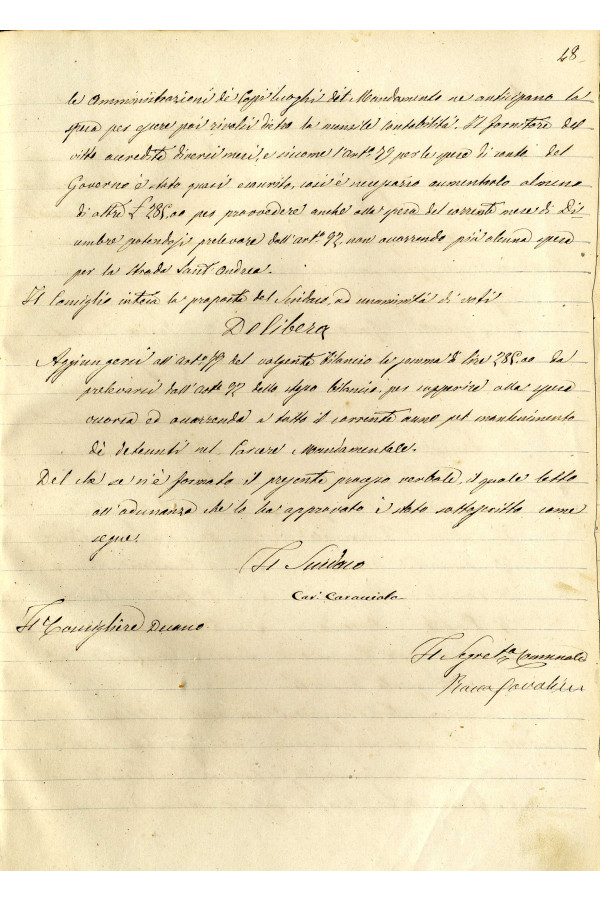 48
le Amministrazioni di Capi luoghi del Mandamento ne anticipano la
spesa per essere poi rivalsi dietro la mensile contabilità. Il fornitore del
vitto accredita diversi mesi, e siccome l'art.º 79 per le spese di conto del
Governo è stato quasi esaurito, così è necessario aumentarlo almeno
di altre £ 285,00 per provvedere anche alla spesa del corrente mese di Di-
cembre potendosi prelevare dall'art.º 92, non occorrendo più alcuna spesa
per la strada Sant'Andrea.
Il Consiglio intesa la proposta del Sindaco, ad unanimità di voti
Delibera
Aggiungersi all'art.º 79 del volgente Bilancio la somma di lire 285,00 da
prelevarsi dall'art.º 92 dello stesso bilancio, per supperire alla spesa
occorsa ed occorrenda a tutto il corrente anno pel mantenimento
di detenuti nel Carcere Mandamentale.
Del che se n'è formato il presente processo verbale, il quale letto
all'adunanza che lo ha approvato è stato sottoscritto come
segue.
Il Sindaco
Cav. Caracciolo
Il Consigliere Deano
Il Segret.rio Comunale